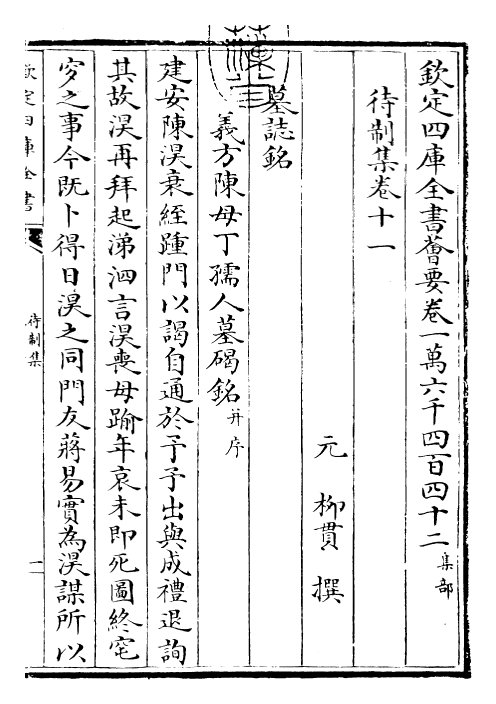 欽定四庫全書薈要卷一萬六千四百四十二 集部
待制集卷十一
元 柳貫 撰
墓誌銘
義方陳母丁孺人墓碣銘 并序
建安陳淏衰絰踵門以謁自通於予予出與成禮退詢
其故淏再拜起涕泗言淏喪母踰年哀未即死圖終窀
穸之事今既卜得日淏之同門友蔣易實為淏謀所以
欽定四庫全書
待制集
一